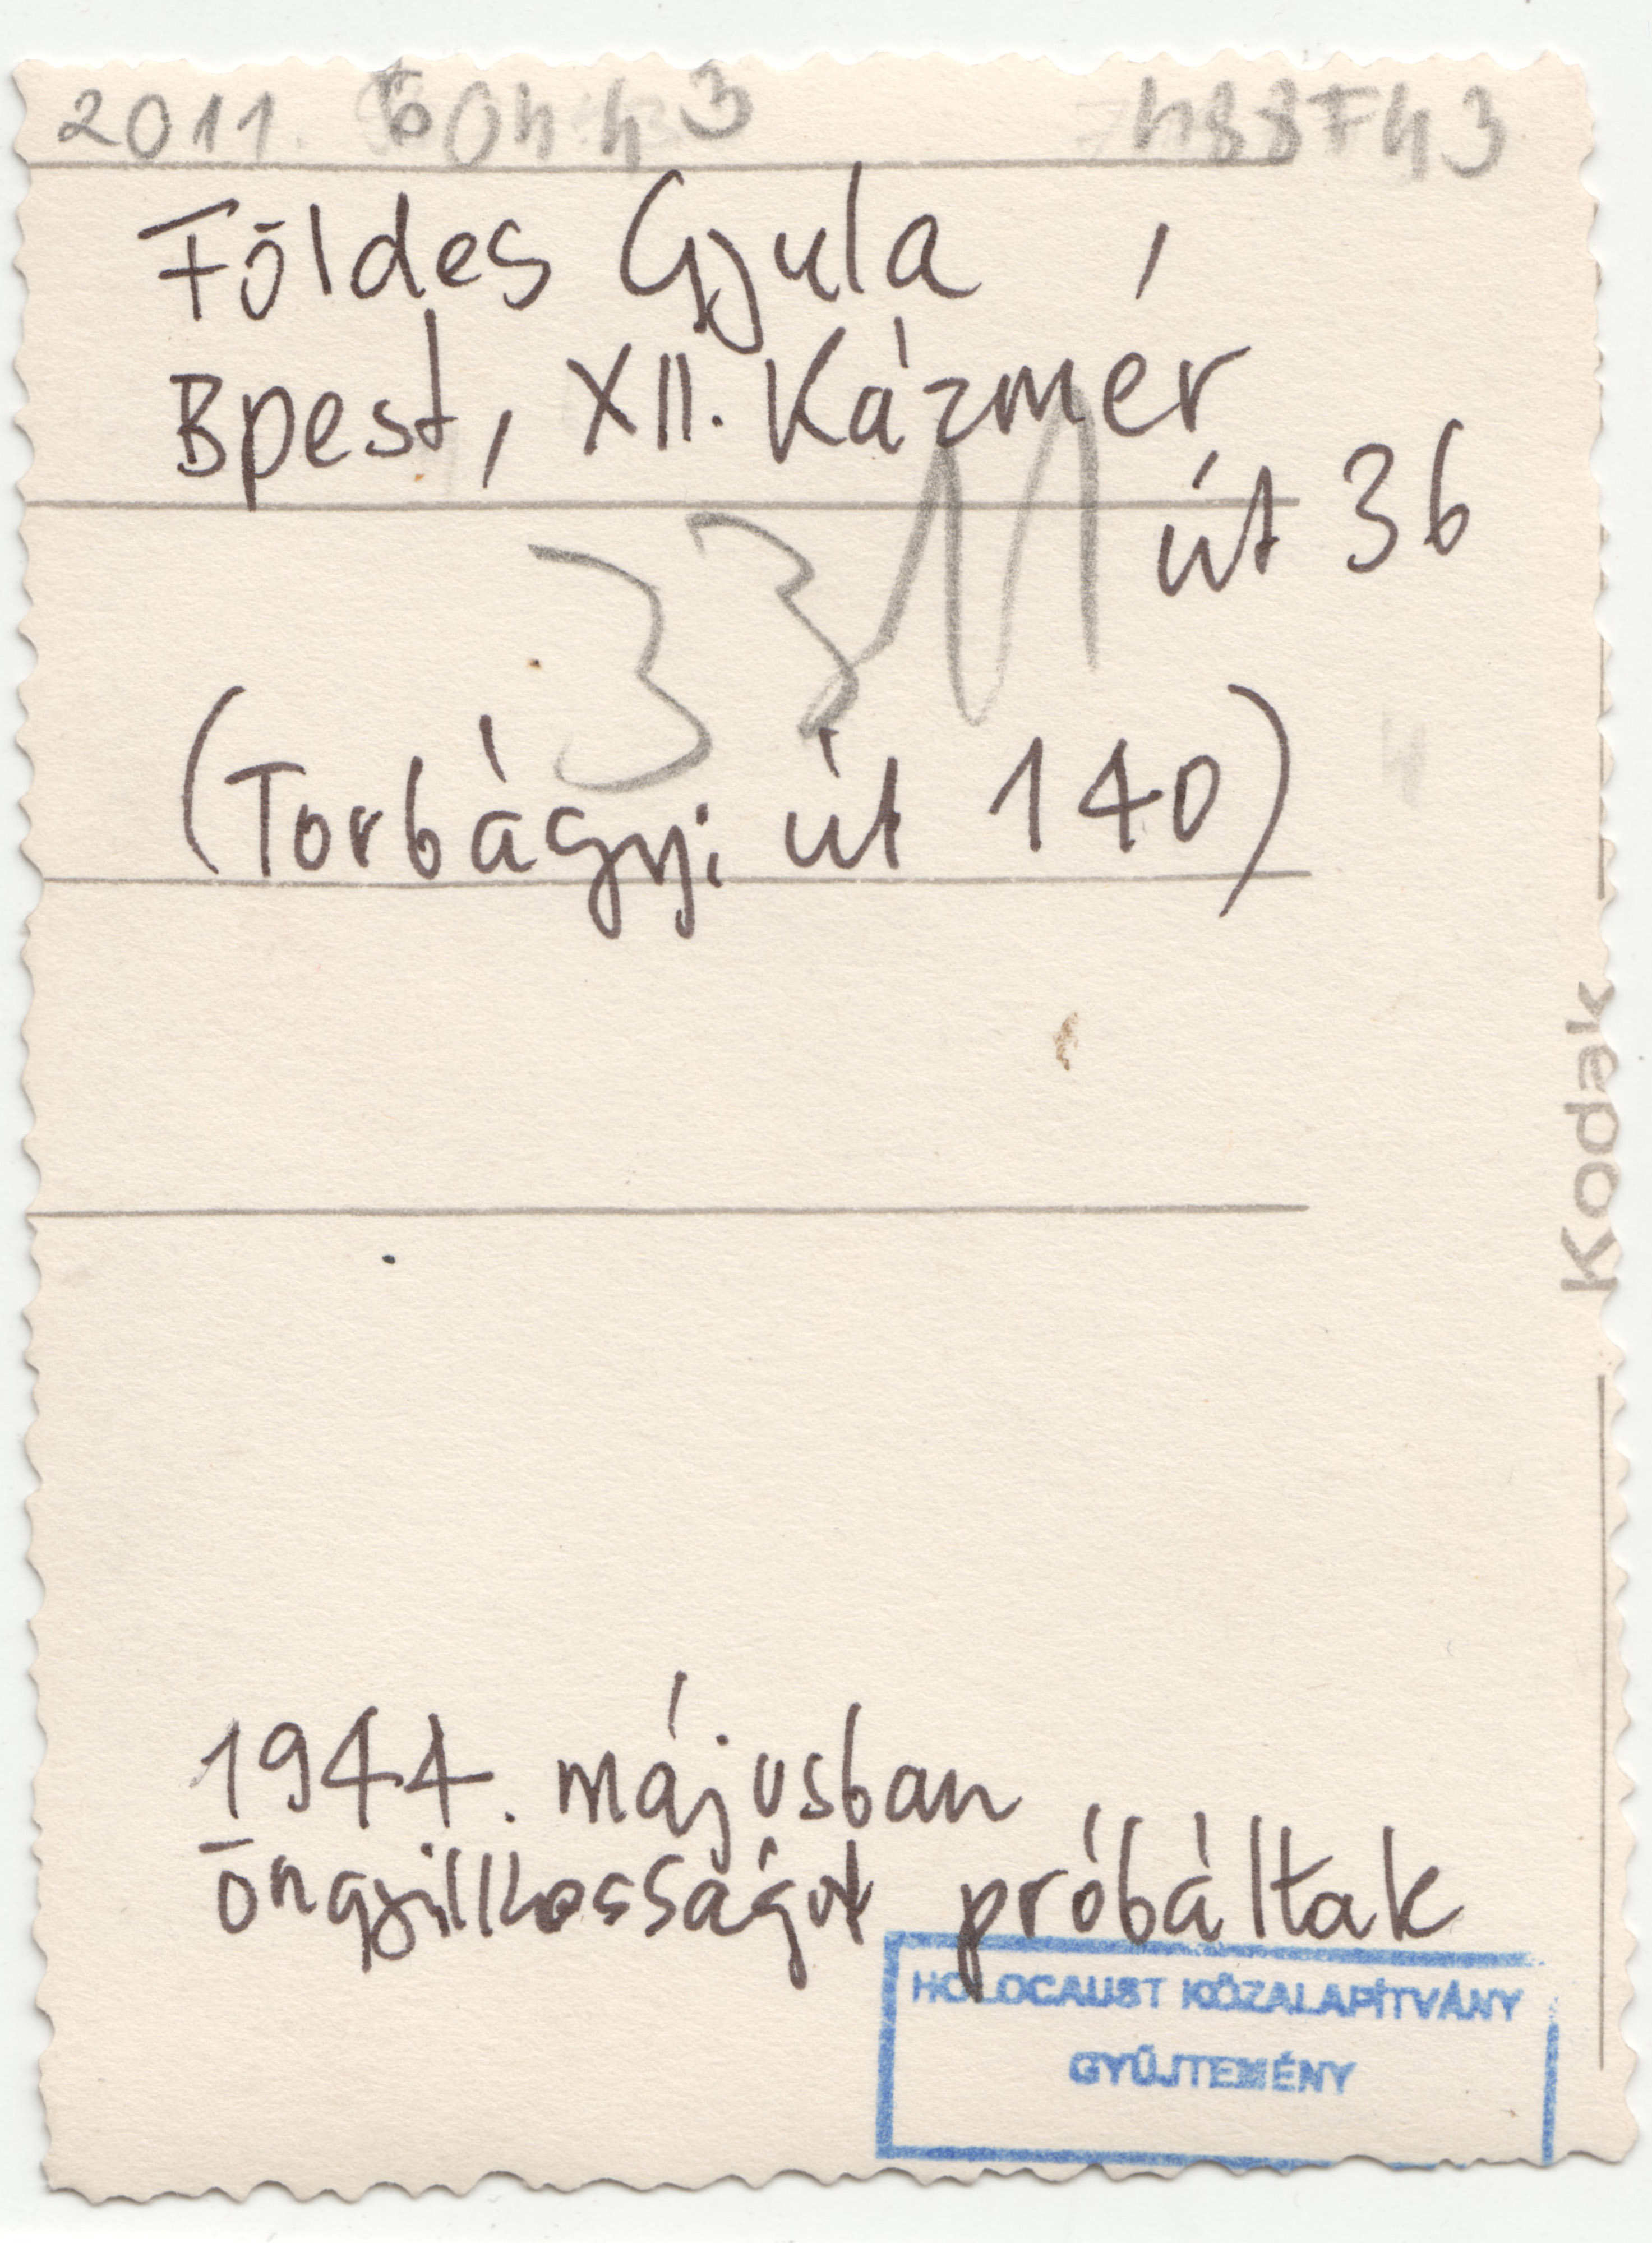 2011.
Földes Gyula
Bpest, XII. Kázmér
út 36
(Torbágyi út 140)
Kodak
1944. májusban
öngyilkosságot próbáltak
HOLOCAUST KÖZALAPÍTVÁNY
GYŰJTEMÉNY